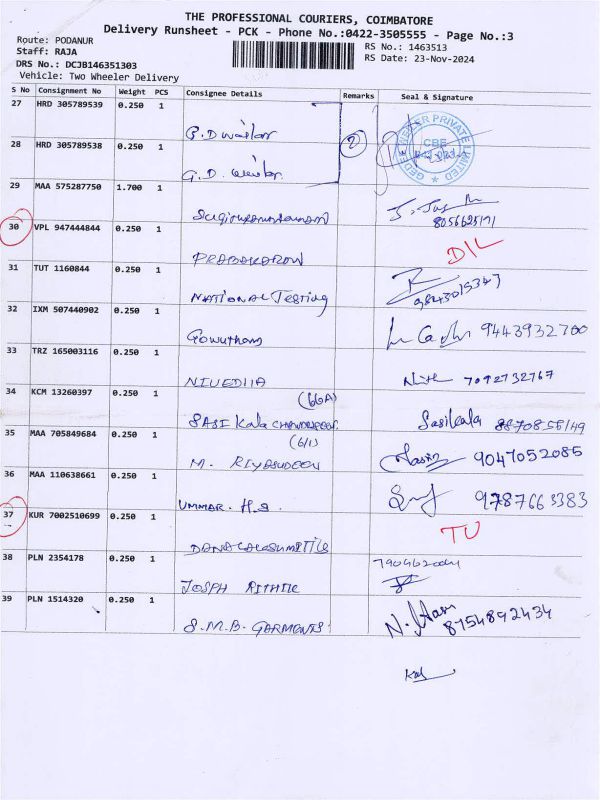 THE PROFESSIONAL COURIERS, COIMBATORE
Delivery Runsheet - PCK - Phone No.:0422-3505555 - Page No.:3
Route: PODANUR
RS No.: 1463513
Staff: RAJA
RS Date: 23-Nov-2024
DRS No.: DCJB146351303
Vehicle: Two Wheeler Delivery
S No Consignment No Weight PCS Consignee Details Remarks Seal & Signature
27 HRD 305789539 0.250 1
2
GEDEE WEILER PRIVATE LIMITED
CBE
28 HRD 305789538 0.250 1
G.D. Weiler
29 MAA 575287750 1.700 1
8056625191
30 VPL 947444844 0.250 1
PRABAKARAN
D/L
31 TUT 1160844 0.250 1
NATIONAL Testing
9843015347
32 IXM 507440902 0.250 1
Gowutham
9443932700
33 TRZ 165003116 0.250 1
NIVEDIIA
7092732767
34 KCM 13260397 0.250 1
(66A)
SASI Kala
Sasikala 8870855149
35 MAA 705849684 0.250 1
(6/1)
M. RIYASUDEEN
9047052085
36 MAA 110638661 0.250 1
UMMAR. H.S.
9787663383
37 KUR 7002510699 0.250 1
TU
38 PLN 2354178 0.250 1
JOSPH RITHIK
39 PLN 1514320 0.250 1
S.M.B. GARMENTS
8754892434